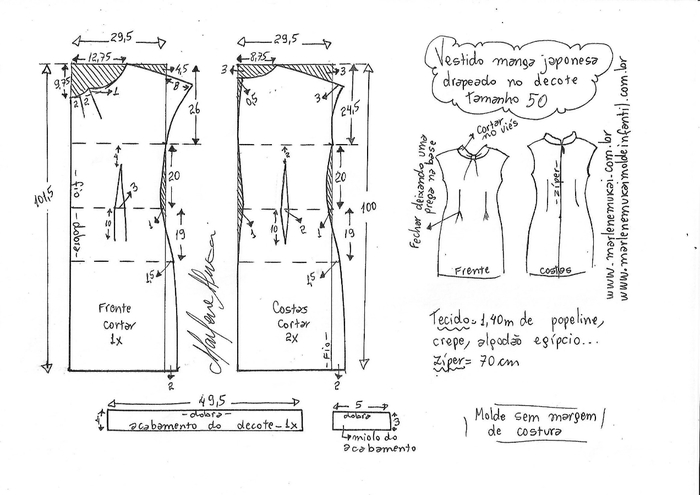 29,5
12,75
9,75
4,5
8
2
2
1
26
101,5
4
20
3
10
1
19
1,5
-dobra-
-fio-
Frente
cortar
1x
2
29,5
8,75
3
3
0,5
3
24,5
2
20
2
10
1
1
19
1,5
100
Costas
Cortar
2x
-Fio-
2
Marlene Mukai
Vestido manga japonesa
drapeado no decote
tamanho 50
Cortar
no viés
Fechar deixando uma
prega na base
-zíper-
Frente
Costas
www.marlenemukai.com.br
www.marlenemukaimoldeinfantil.com.br
Tecido=1,40m de popeline,
crepe, algodão egípcio...
zíper= 70 cm
49,5
4
-dobra-
acabamento do decote-1x
5
dobra
3
miolo do
acabamento
Molde sem margem
de costura